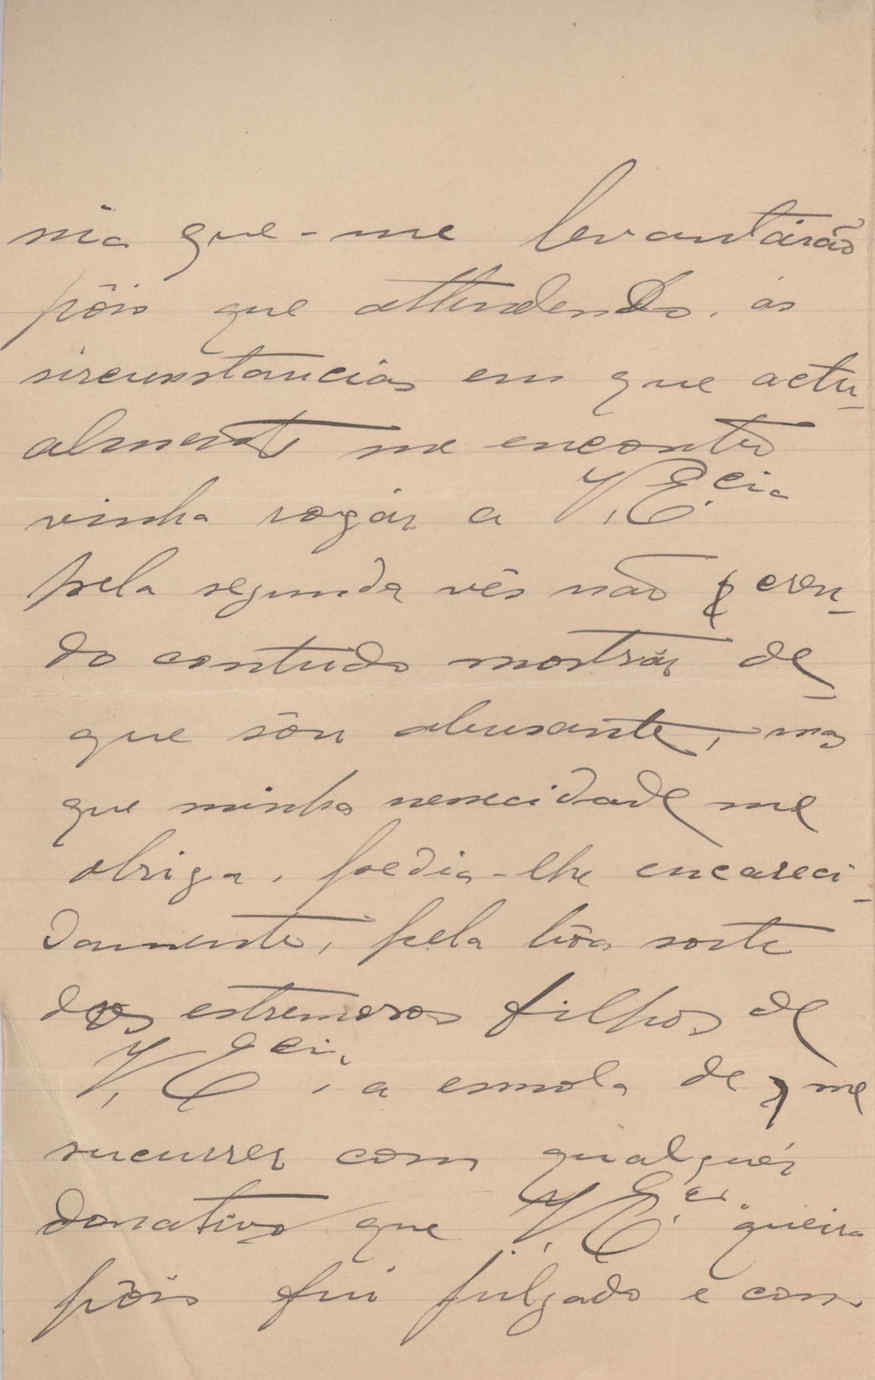 nia que-me levantárão
pôis que attendendo. ás
sircunstancias em que actu-
almente me encontro
vinha rogár a V, E.cia
pela segunda vês não q eren-
do contudo mostrár de-
que sôu abusante, mas
que minha nenecidade me
obriga. pedia-lhe encareci-
damente, pela bôa sorte
dos estremosos filhos de
V, Ecia, a esmola de me
sucurrer com qualquér
donativo que V, E.cia queira
pôis fui julgado e con